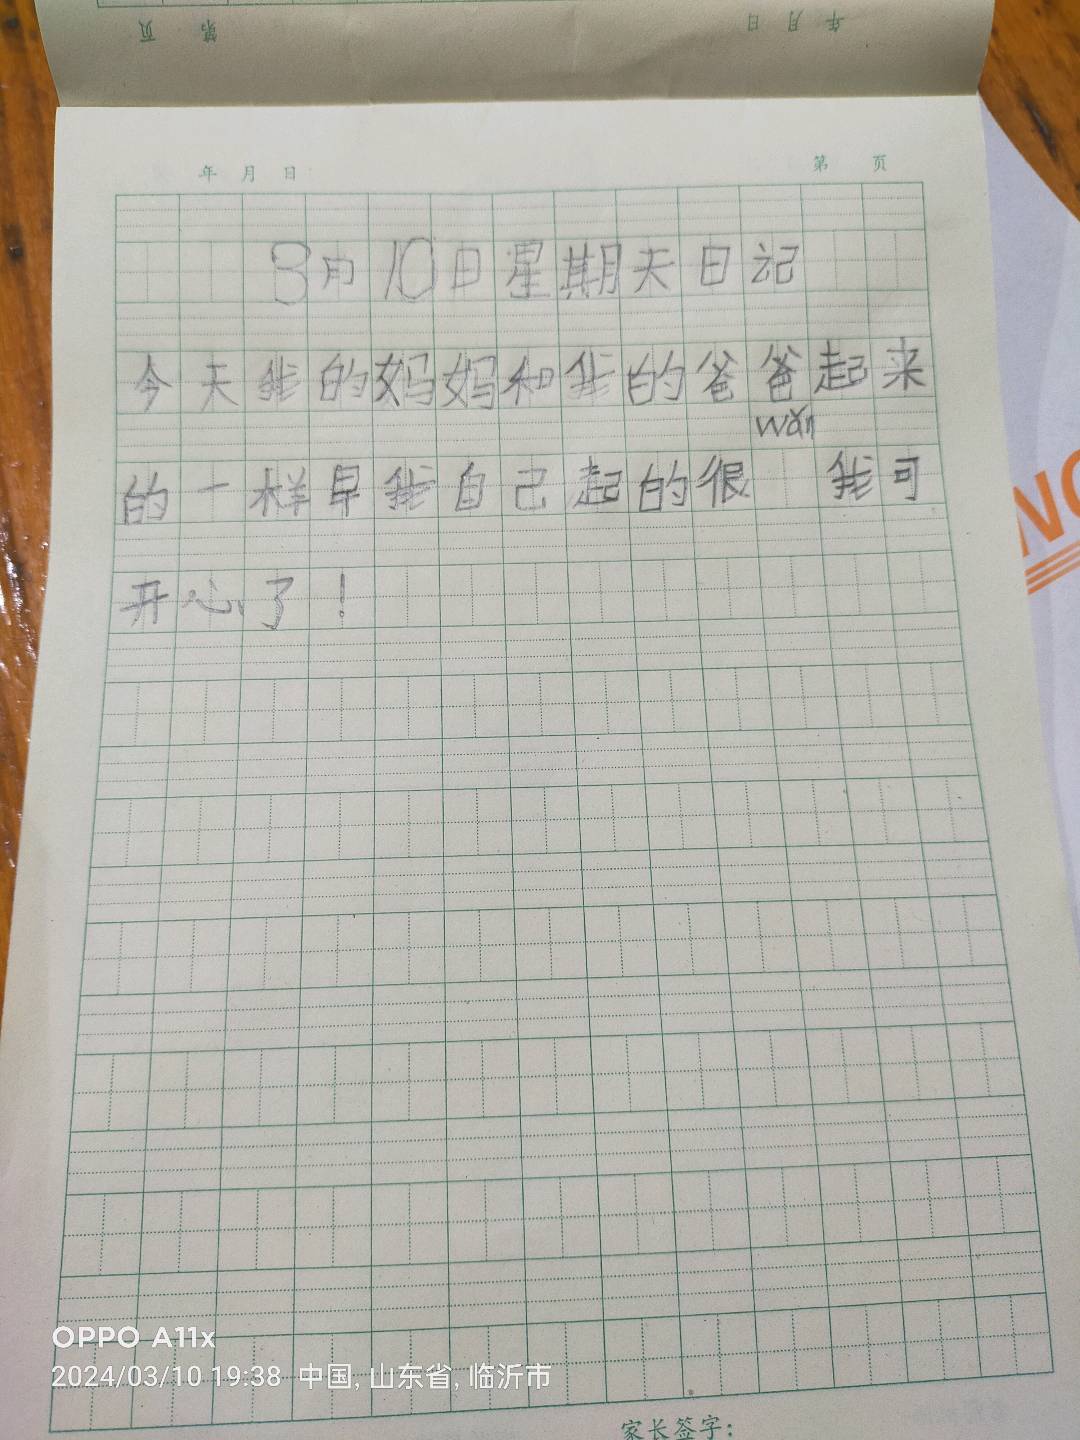 页 第 日 月 年
年 月 日 第 页
3月10日星期天日记
今天我的妈妈和我的爸爸起来
wǎn
的一样早我自己起的很 我可
开心了!
家长签字:
OPPO A11x
2024/03/10 19:38 中国,山东省,临沂市